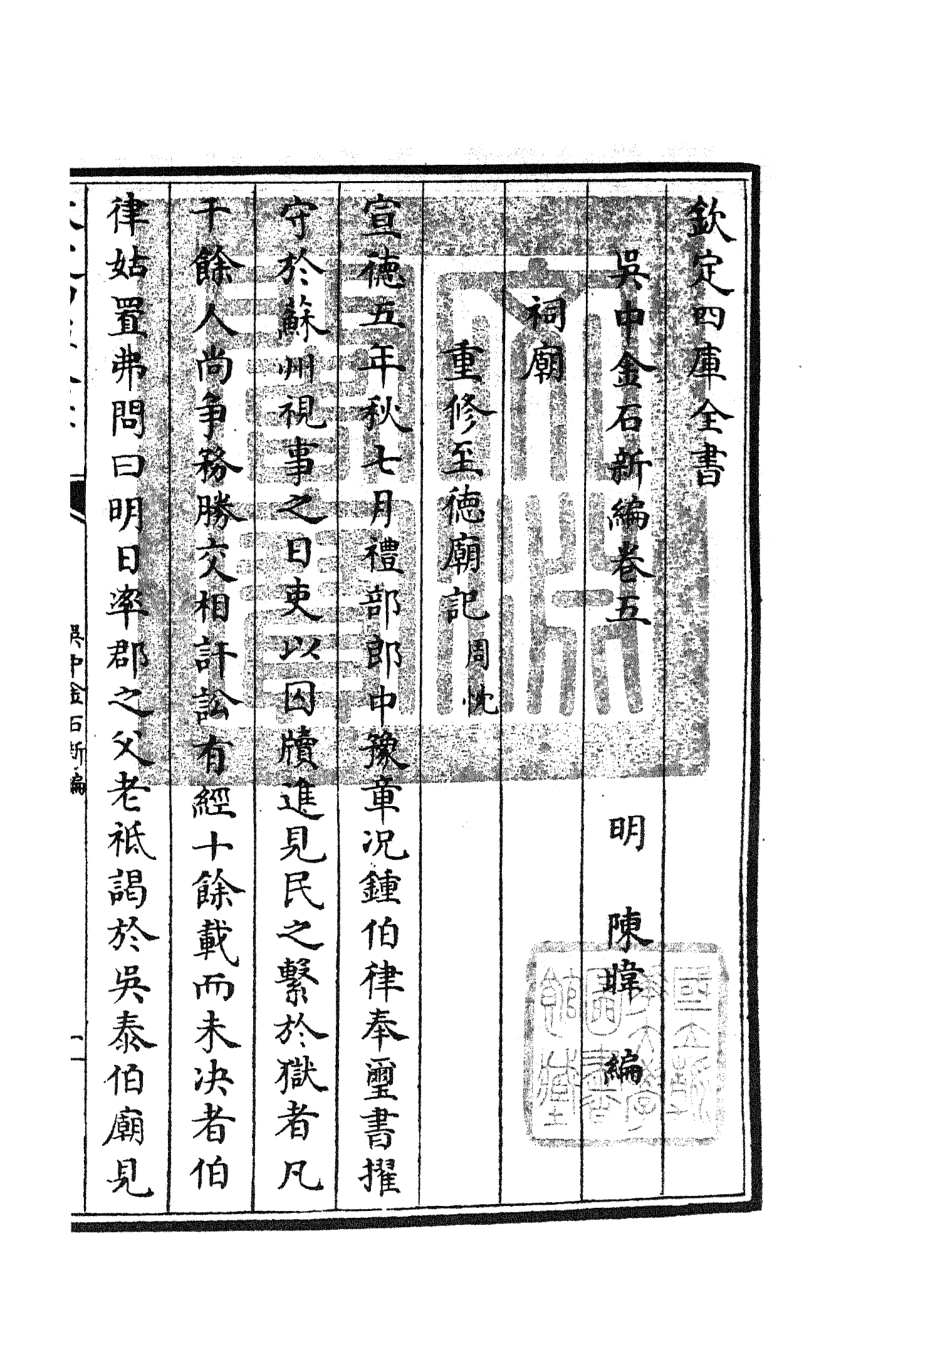 欽定四庫全書
吳中金石新編卷五
明 陳暐 編
祠廟
重修至徳廟記 周忱
宣徳五年秋七月禮部郎中豫章况鍾伯律奉璽書擢
守於蘇州視事之日吏以囚牘進見民之繫於獄者凡
千餘人尚爭務勝交相訐訟有經十餘載而未决者伯
律姑置弗問曰明日率郡之父老祇謁於吳泰伯廟見
吳中金石新編